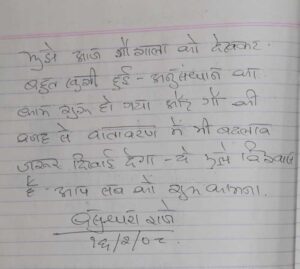 मुझे आज गौशाला को देखकर
बहुत खुशी हुई - अनुसंधान का
काम शुरू हो गया और गौ की
वजह से वातावरण में भी बदलाव
जरूर दिखाई देगा - ये मुझे विश्वास
है - आप सब को शुभ कामना.
वसुन्धरा राजे
१६/२/०८